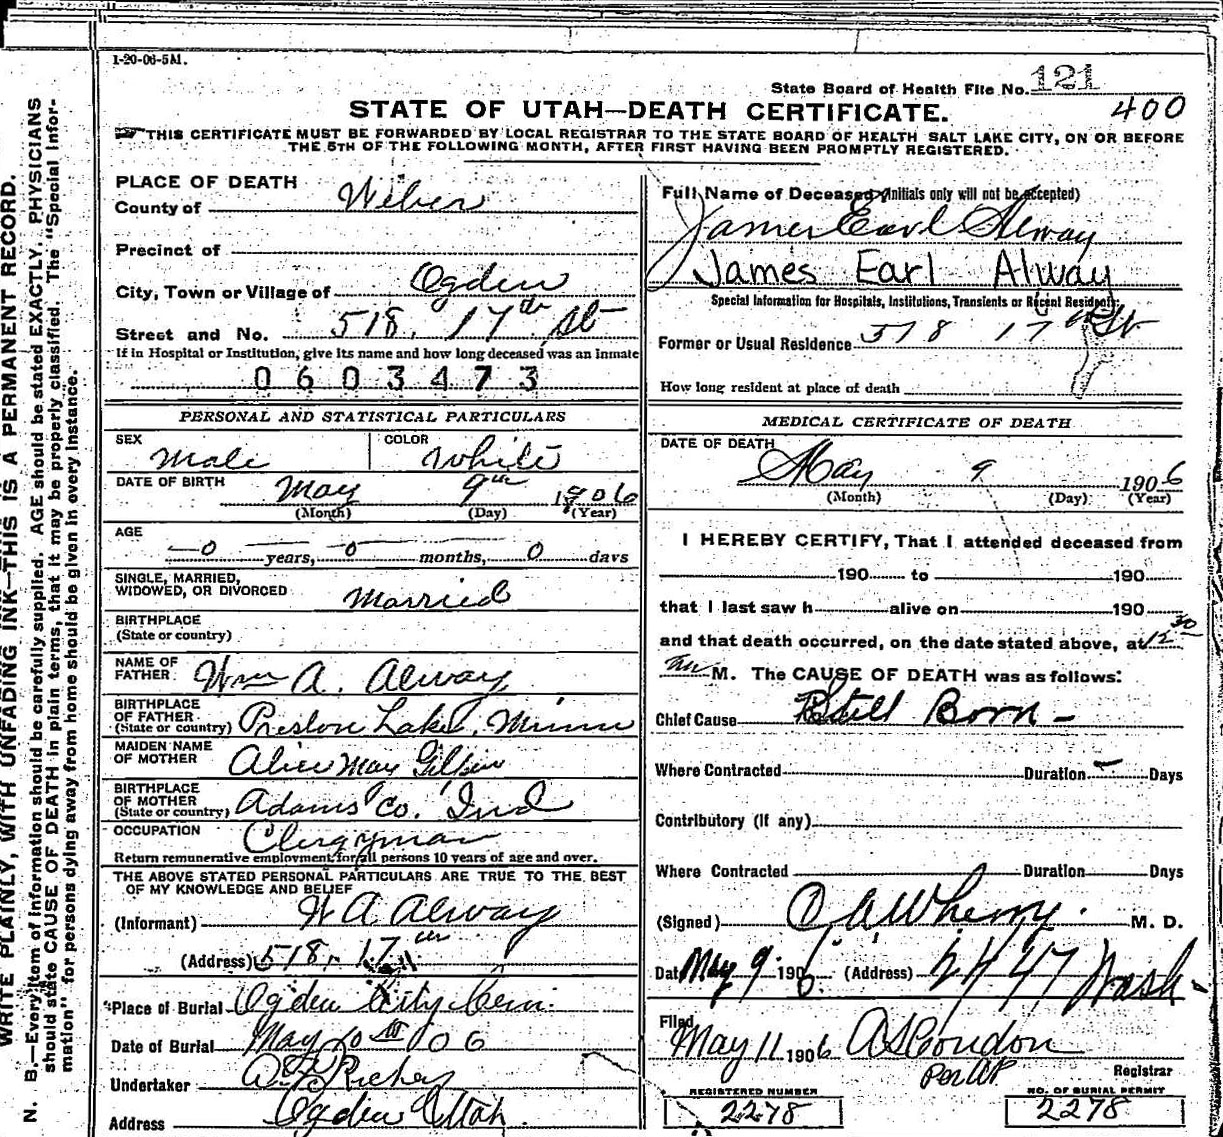 1-20-06-5M.
State Board of Health File No. 121
400
STATE OF UTAH—DEATH CERTIFICATE.
THIS CERTIFICATE MUST BE FORWARDED BY LOCAL REGISTRAR TO THE STATE BOARD OF HEALTH SALT LAKE CITY, ON OR BEFORE
THE 5TH OF THE FOLLOWING MONTH, AFTER FIRST HAVING BEEN PROMPTLY REGISTERED.
WRITE PLAINLY, WITH UNFADING INK—THIS IS A PERMANENT RECORD.
N. B.—Every item of information should be carefully supplied. AGE should be stated EXACTLY. PHYSICIANS
should state CAUSE OF DEATH in plain terms, that it may be properly classified. The "Special Infor-
mation" for persons dying away from home should be given in every instance.
PLACE OF DEATH
County of Weber
Precinct of
City, Town or Village of Ogden
Street and No. 518, 17th St
If in Hospital or Institution, give its name and how long deceased was an Inmate
0603473
PERSONAL AND STATISTICAL PARTICULARS
SEX Male COLOR White
DATE OF BIRTH May 9th 1906
(Month) (Day) (Year)
AGE
0 years, 0 months, 0 days
SINGLE, MARRIED,
WIDOWED, OR DIVORCED Married
BIRTHPLACE
(State or country)
NAME OF
FATHER Wm A. Alway
BIRTHPLACE
OF FATHER
(State or country) Preston Lake, Minn
MAIDEN NAME
OF MOTHER Alice May
BIRTHPLACE
OF MOTHER
(State or country) Adams Co. Ind
OCCUPATION Clergyman
Return remunerative employment for all persons 10 years of age and over.
THE ABOVE STATED PERSONAL PARTICULARS ARE TRUE TO THE BEST
OF MY KNOWLEDGE AND BELIEF
(Informant) W A Alway
(Address) 518, 17th
Place of Burial Ogden City Cem.
Date of Burial May 10 06
Undertaker Richey
Address Ogden Utah.
Full Name of Deceased (Initials only will not be accepted)
James Earl Alway
James Earl Alway
Special Information for Hospitals, Institutions, Transients or Recent Residents.
Former or Usual Residence 518 17th St
How long resident at place of death
MEDICAL CERTIFICATE OF DEATH
DATE OF DEATH
May 9 1906
(Month) (Day) (Year)
I HEREBY CERTIFY, That I attended deceased from
190 to 190
that I last saw h alive on 190
and that death occurred, on the date stated above, at 12 30
M. The CAUSE OF DEATH was as follows:
Chief Cause Still Born -
Where Contracted Duration Days
Contributory (if any)
Where Contracted Duration Days
(Signed) M. D.
Date May 9, 1906 (Address) 2447 Wash.
Filed
May 11 1906 A S Condon
Per
Registrar
REGISTERED NUMBER
2278
NO. OF BURIAL PERMIT
2278